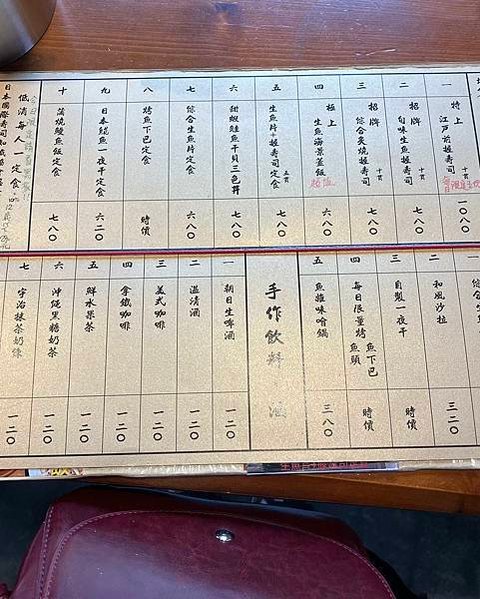 一
特上
江戶前握壽司
十貫
一〇八〇
二
招牌
旬味生魚握壽司
十貫
七八〇
三
招牌
綜合炙燒握壽司
十貫
七八〇
四
極上
生魚海景蓋飯
六八〇
五
生魚片+握壽司定食
五貫
七八〇
六
甜蝦鮭魚干貝三色丼
七八〇
七
綜合生魚片定食
六八〇
八
烤魚下巴定食
時價
九
日本鯖魚一夜干定食
六二〇
十
蒲燒鰻魚飯定食
七八〇
低消每人一定食
一
三二〇
二
和風沙拉
三
自製一夜干
時價
四
每日限量烤魚下巴
魚頭
時價
五
魚雜味噌鍋
三八〇
手作飲料 酒
一
朝日生啤酒
一二〇
二
溫清酒
一二〇
三
美式咖啡
一二〇
四
拿鐵咖啡
一二〇
五
鮮水果茶
一二〇
六
沖繩黑糖奶茶
一二〇
七
宇治抹茶奶綠
一二〇